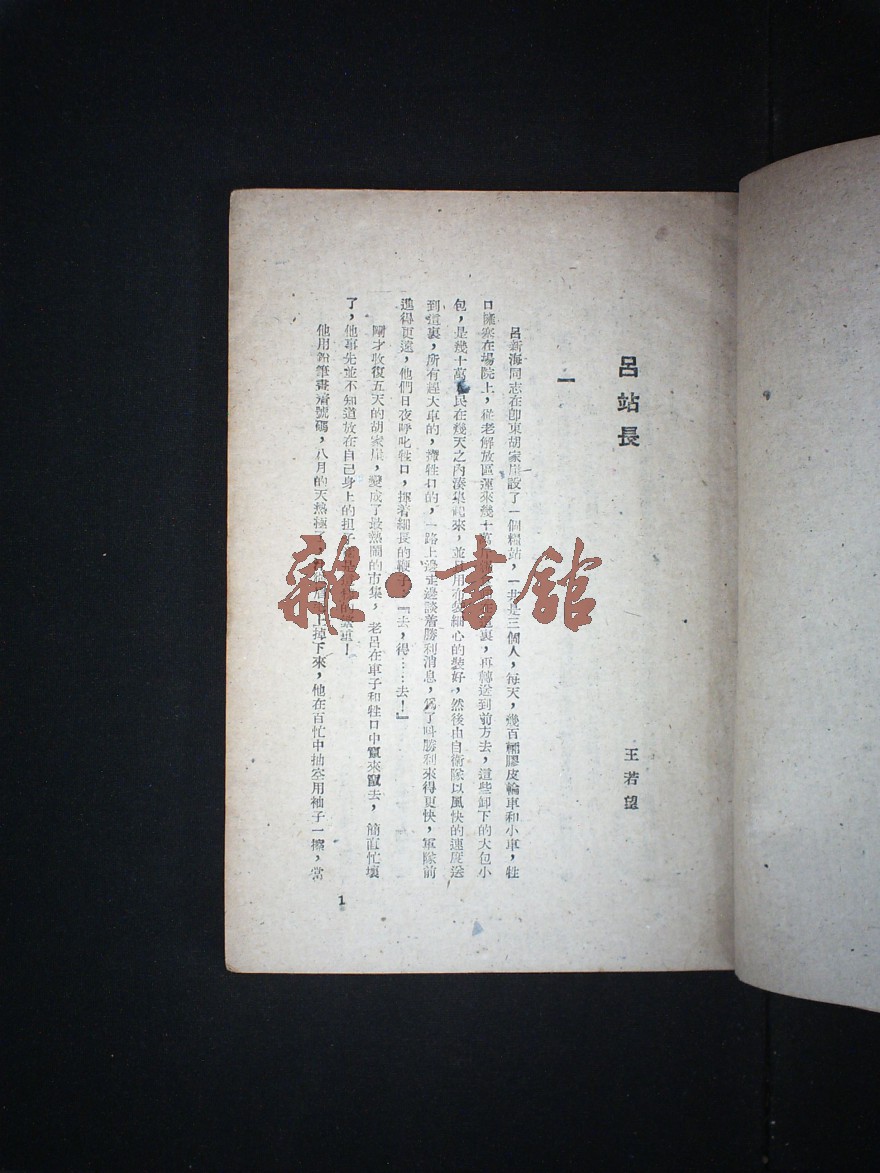 呂站長
王若望
一
呂新海同志在卽東胡家崖設了一個糧站，一共是三個人，每天，幾百輛膠皮輪車和小車，牲
口擁塞在場院上，從老解放區運來幾十萬裏，再轉送到前方去，這些卸下的大包小
包，是幾十萬民在幾天之內湊集起來，並且用布袋細心的裝好，然後由自衛隊以風快的速度送
到這裏，所有趕大車的，攆牲口的，一路上邊走邊談着勝利消息，爲了叫勝利來得更快，軍隊前
進得更遠，他們日夜呼叱牲口，揮着細長的鞭子：『去，得……去！』
剛才收復五天的胡家崖，變成了最熱鬧的市集，老呂在車子和牲口中竄來竄去，簡直忙壞
了，他事先並不知道放在自己身上的担子是重！
他用鉛筆畫着號碼，八月的天熱極上掉下來，他在百忙中抽空用袖子一擦，當
1
雜·書館